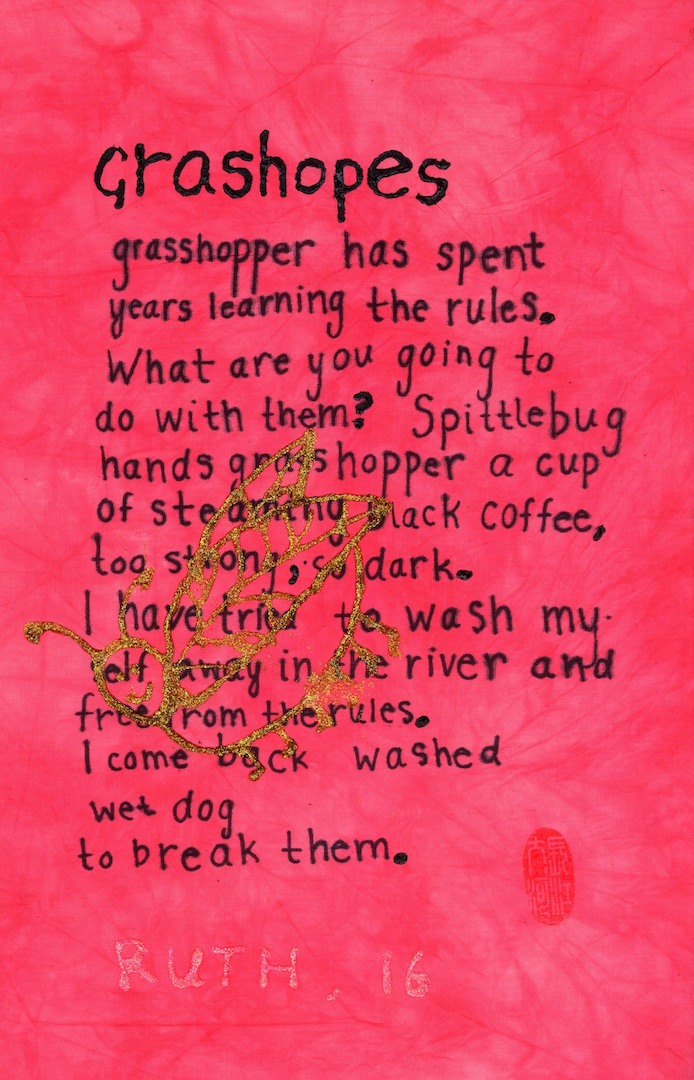 Grashopes
grasshopper has spent
years learning the rules.
What are you going to
do with them? Spittlebug
hands grasshopper a cup
of steaming black coffee,
too strong, so dark.
I have tried to wash my-
self away in the river and
free from the rules.
I come back washed
wet dog
to break them.
RUTH, 16